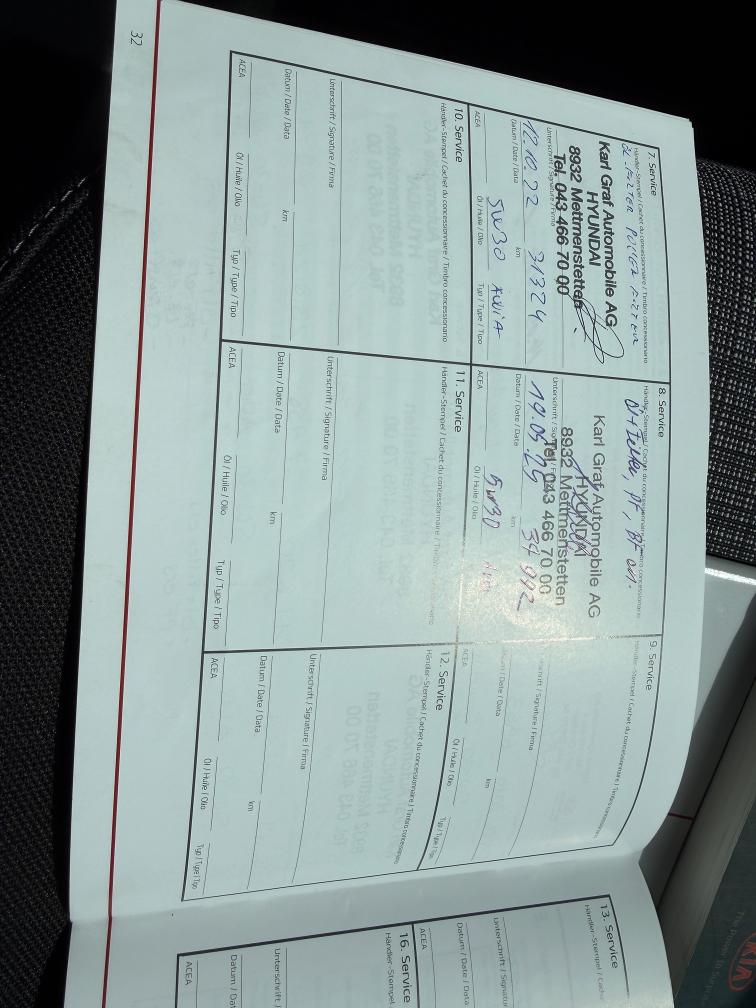 7. Service
Händler-Stempel / Cachet du concessionnaire / Timbro concessionario
Karl Graf Automobile AG
HYUNDAI
8932 Mettmenstetten
Tel. 043 466 70 00
Unterschrift / Signature / Firma
12.10.22 31324
Datum / Date / Data km
5W30
ACEA Öl / Huile / Olio Typ / Type / Tipo
8. Service
Händler-Stempel / Cachet du concessionnaire / Timbro concessionario
Öl + Filter, PF, BF
Karl Graf Automobile AG
HYUNDAI
8932 Mettmenstetten
Tel. 043 466 70 00
Unterschrift / Signature / Firma
Datum / Date / Data km
5W30
ACEA Öl / Huile / Olio Typ / Type / Tipo
9. Service
Händler-Stempel / Cachet du concessionnaire / Timbro concessionario
Unterschrift / Signature / Firma
Datum / Date / Data km
ACEA Öl / Huile / Olio Typ / Type / Tipo
10. Service
Händler-Stempel / Cachet du concessionnaire / Timbro concessionario
Unterschrift / Signature / Firma
Datum / Date / Data km
ACEA Öl / Huile / Olio Typ / Type / Tipo
11. Service
Händler-Stempel / Cachet du concessionnaire / Timbro concessionario
Unterschrift / Signature / Firma
Datum / Date / Data km
ACEA Öl / Huile / Olio Typ / Type / Tipo
12. Service
Händler-Stempel / Cachet du concessionnaire / Timbro concessionario
Unterschrift / Signature / Firma
Datum / Date / Data km
ACEA Öl / Huile / Olio Typ / Type / Tipo
32
13. Service
Händler-Stempel / Cach
Unterschrift / Signatur
Datum / Date / Data
ACEA
16. Service
Händler-Stempel / Cac
Unterschrift / Signa
Datum / Date / Dat
ACEA
KIA